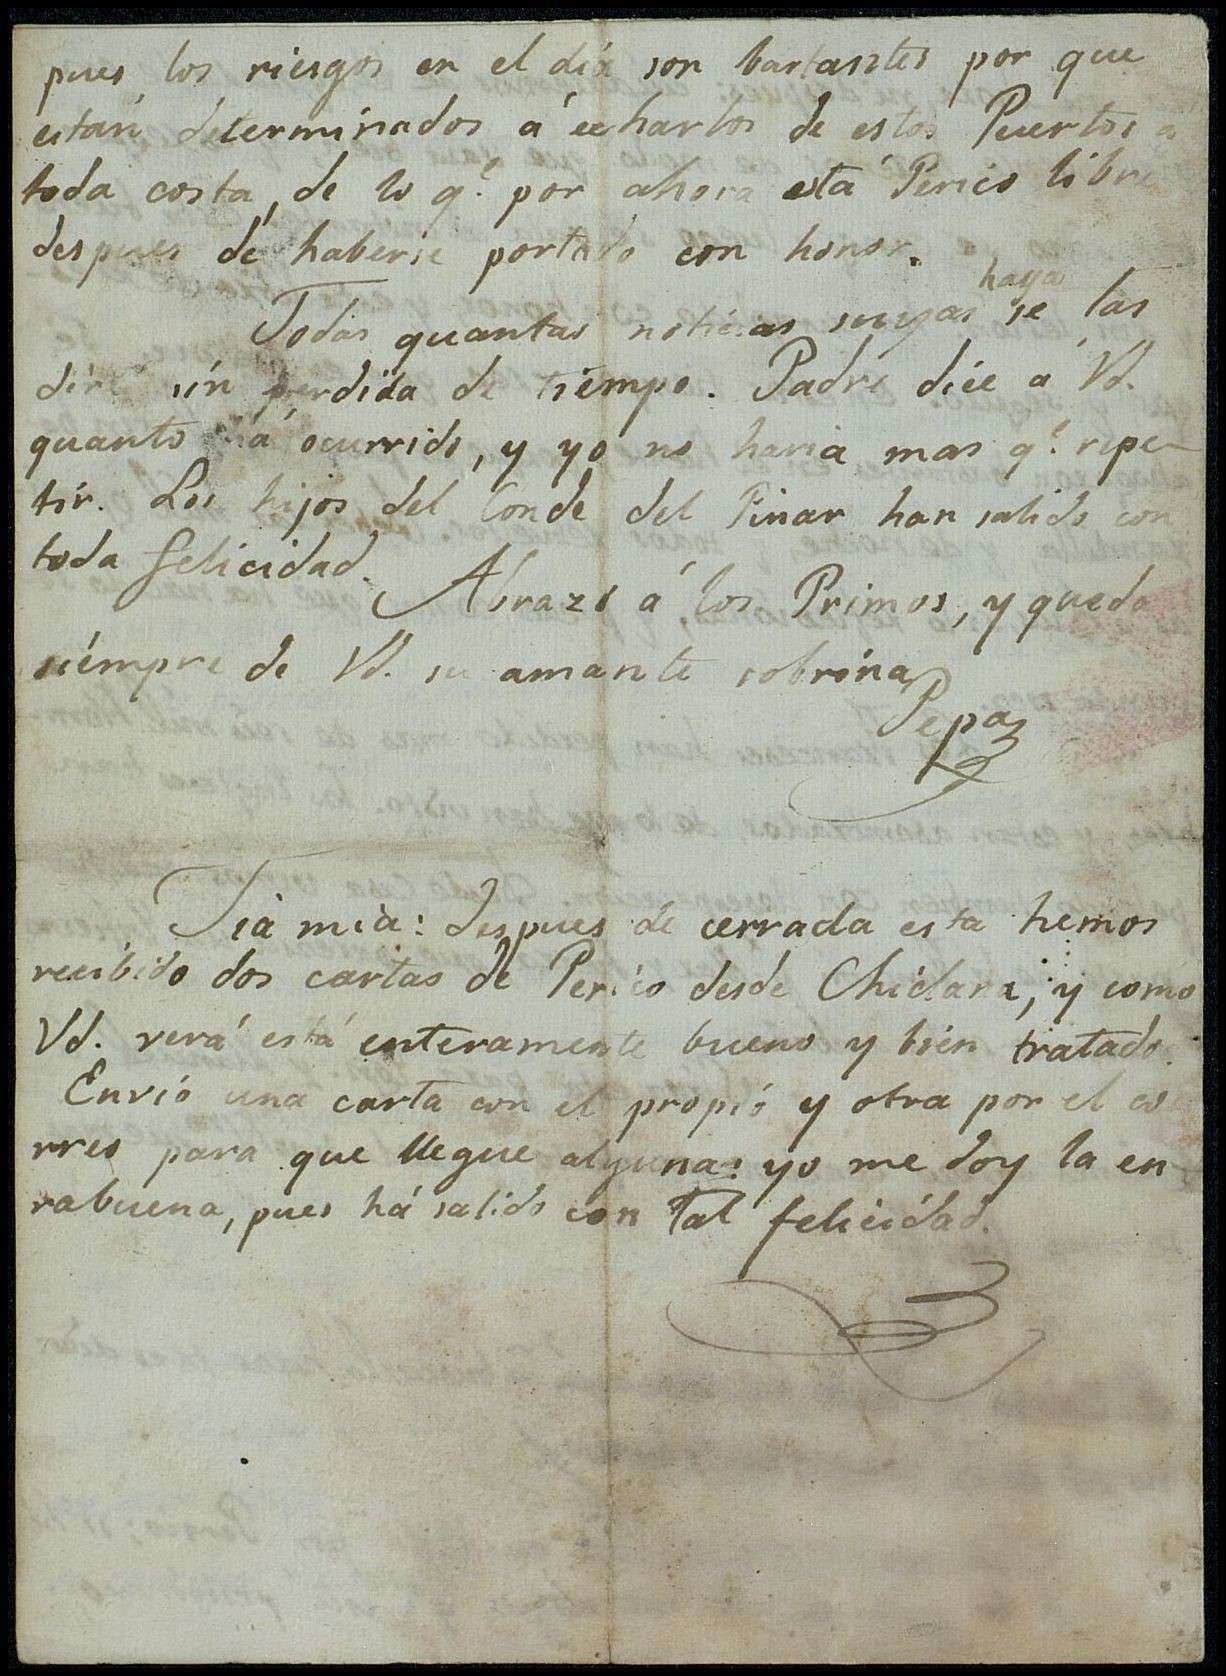 pues, los riesgos en el diá son bastantes por que
están determinados á echarlos de estos Puertos a
toda costa, de lo q.e por ahora está Perico libre
despues de haberse portado con honor.
haya
Todas quantas noticias suyas se las
diré sin perdida de tiempo. Padre dice á Vd.
quanto há ocurrido, y yo no haria mas q.e repe-
tir. Los hijos del Conde del Pinar han salido con
toda felicidad.
Abrazo á los Primos, y quedo
siémpre de Vd. su amante sobrina
Pepa
Tiá mia: despues de cerrada esta hemos
recibido dos cartas de Perico desde Chiclana, y como
Vd. verá está enteramente bueno y bien tratado.
Envio una carta con el propió y otra por el co
rreo para que llegue alguna: yo me doy la en
rabuena, pues há salido con tal felicidad.